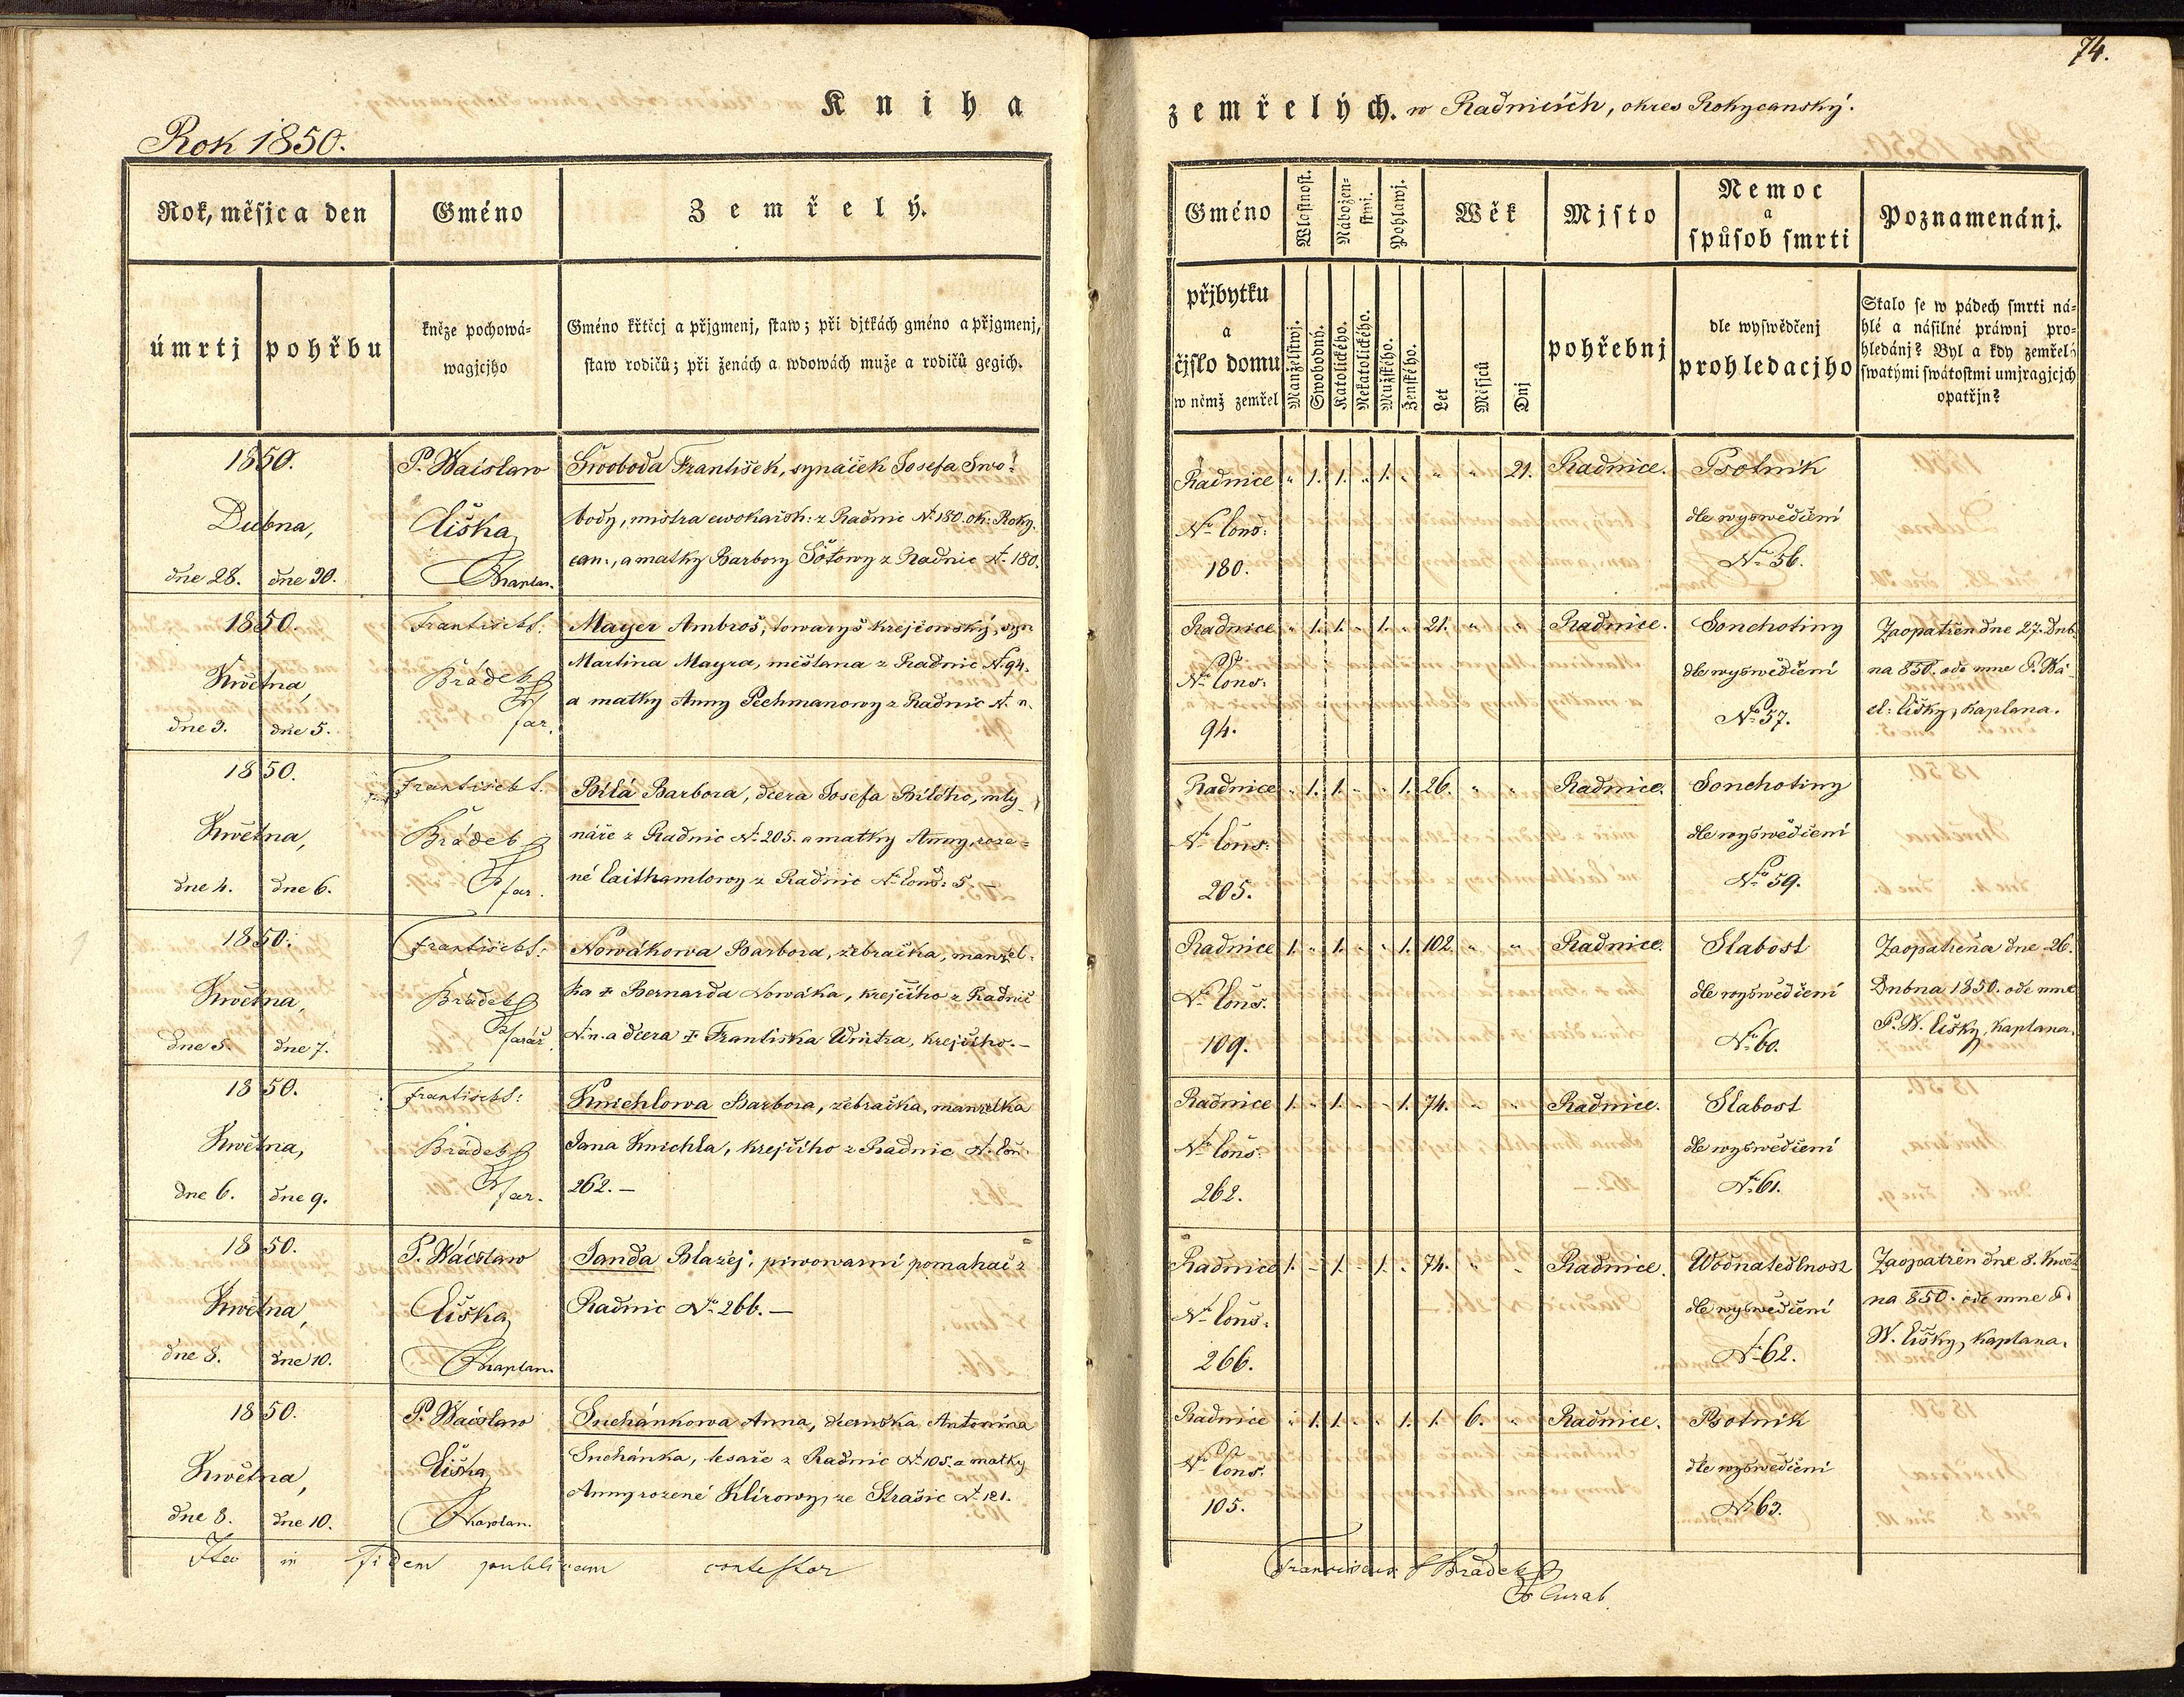 74.
Kniha
zemřelých. w Radnicích, okres Rokycanský.
Rok 1850.
Rok, měsjc a den
Gméno
Zemřelý.
úmrtj
pohřbu
kněze pochowá-
wagjcjho
Gméno křtěcj a přjgmenj, staw; při djtkách gméno a přjgmenj,
staw rodičů; při ženách a wdowách muže a rodičů gegich.
Gméno
přjbytku
a
čjslo domu
w němž zemřel
Wlastnost.
Manželstwj.
Swobodný.
Nábožen-
stwj.
Katolického.
Nekatolického.
Pohlawj.
Mužského.
Ženského.
Wěk
Let
Měsjců
Dnj
Mjsto
pohřebnj
Nemoc
a
spůsob smrti
dle wyswědčenj
prohledacjho
Poznamenánj.
Stalo se w pádech smrti ná-
hlé a násilné práwnj pro-
hledánj? Byl a kdy zemřelý
swatými swátostmi umjragjcjch
opatřjn?
1850.
Dubna,
dne 28. dne 30.
P. Wácslaw
Liška,
Kaplan.
Swoboda František, synáček Josefa Swo-
body, mistra cwokařsk: z Radnic No 180. ok: Roky-
can:, a matky Barbory Šótowy z Radnic No 180.
Radnice
No Cons:
180.
" 1. 1. " 1. " " " 21.
Radnice.
Psotník
dle wyswědčení
No 56.
1850.
Května,
dne 3. dne 5.
František S:
Brádek
far.
Mayer Ambrož, towaryš krejčowský, syn
Martina Mayra, měšťana z Radnic No 94.
a matky Anny Pechmanowy z Radnic No n.
Radnice
No Cons:
94.
" 1. 1. " 1. " 21. " "
Radnice.
Souchotiny
dle wyswědčení
No 57.
Zaopatřen dne 27. Dub-
na 850. ode mne P. Wá-
cl: Lišky, kaplana.
1850.
Května,
dne 4. dne 6.
František S.
Brádek
far.
Bílá Barbora, dcera Josefa Bílého, mly-
náře z Radnic No 205. a matky Anny, roze-
né Laithamlowy z Radnic No Cons: 5. –
Radnice
No Cons:
205.
" 1. 1. " " 1. 26. " "
Radnice.
Souchotiny
dle wyswědčení
No 59.
1850.
Května,
dne 5. dne 7.
František S:
Brádek
farář.
Nowákowa Barbora, žebračka, manžel-
ka † Bernarda Nowáka, krejčího z Radnic
No n. a dcera † Františka Wintra, krejčího. –
Radnice
No Cons.
109.
1. " 1. " " 1. 102. " "
Radnice.
Slabost
dle wyswědčení
No 60.
Zaopatřena dne 26.
Dubna 1850. ode mne
P. W. Lišky, kaplana.
1850.
Května,
dne 6. dne 9.
František S:
Brádek
far.
Knichlowa Barbora, žebračka, manželka
Jana Knichla, krejčího z Radnic No Con:
262. –
Radnice
No Cons:
262.
1. " 1. " " 1. 74. " "
Radnice.
Slabost
dle wyswědčení
No 61.
1850.
Května,
dne 8. dne 10.
P. Wácslaw
Liška,
Kaplan.
Janda Blažej, piwowarní pomahač z
Radnic No 266. –
Radnice
No Cons.
266.
1. – 1. – 1. " 74. " "
Radnice.
Wodnatedlnost
dle wyswědčení
No 62.
Zaopatřen dne 8. Kwět-
na 850. ode mne P.
W. Lišky, kaplana.
1850.
Května,
dne 8. dne 10.
P. Wácslaw
Liška,
Kaplan.
Suchánkowa Anna, dceruška Antonína
Suchánka, tesaře z Radnic No 105. a matky
Anny rozené Klírowy, ze Strašic No 121.
Radnice
No Cons.
105.
" 1. 1. " " 1. 1. 6. "
Radnice.
Psotník
dle wyswědčení
No 63.
Ita in fidem publicam contestor
Franciscus S Brádek
Curat.